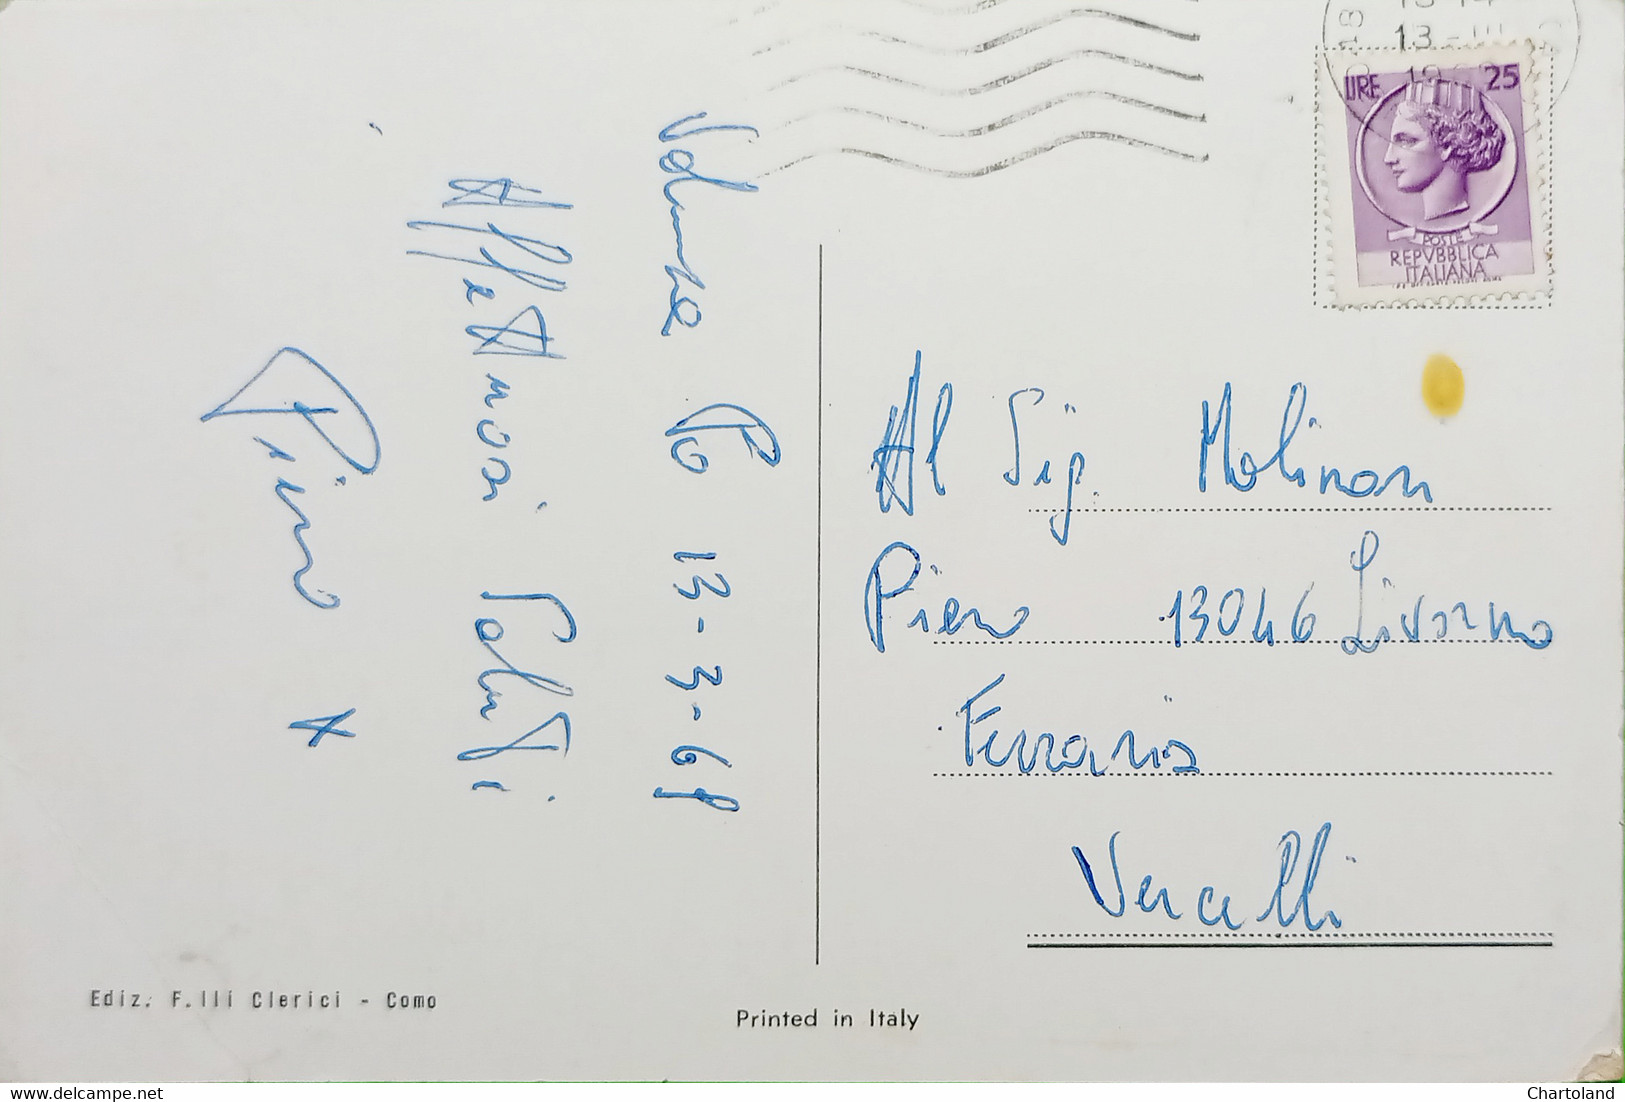 13-14
13-III
LIRE 25
POSTE
REPVBBLICA
ITALIANA
Po 13-3-69
Affettuosi Saluti
Pino
Al Sig. Molinari
Piero 13046 Livorno
Ferraris
Vercelli
Ediz. F.lli Clerici - Como
Printed in Italy
Chartoland